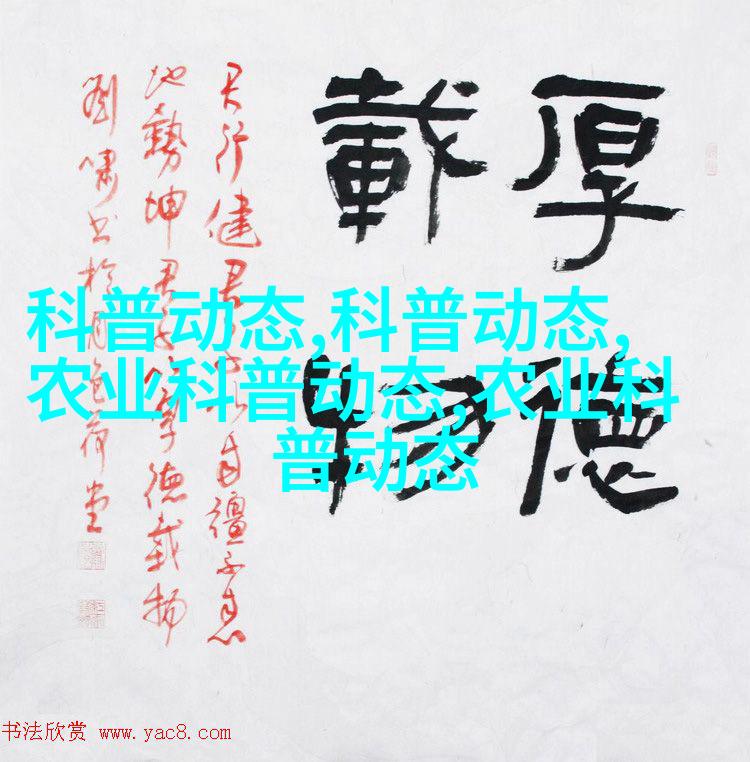 厚德
載物
天行健君子以自彊不息
地勢坤君子以厚德載物
劉嘯书於月色荷堂
科普动态,科普动态,
农业科普动态,农业科
普动态
书法欣赏 www.yac8.com